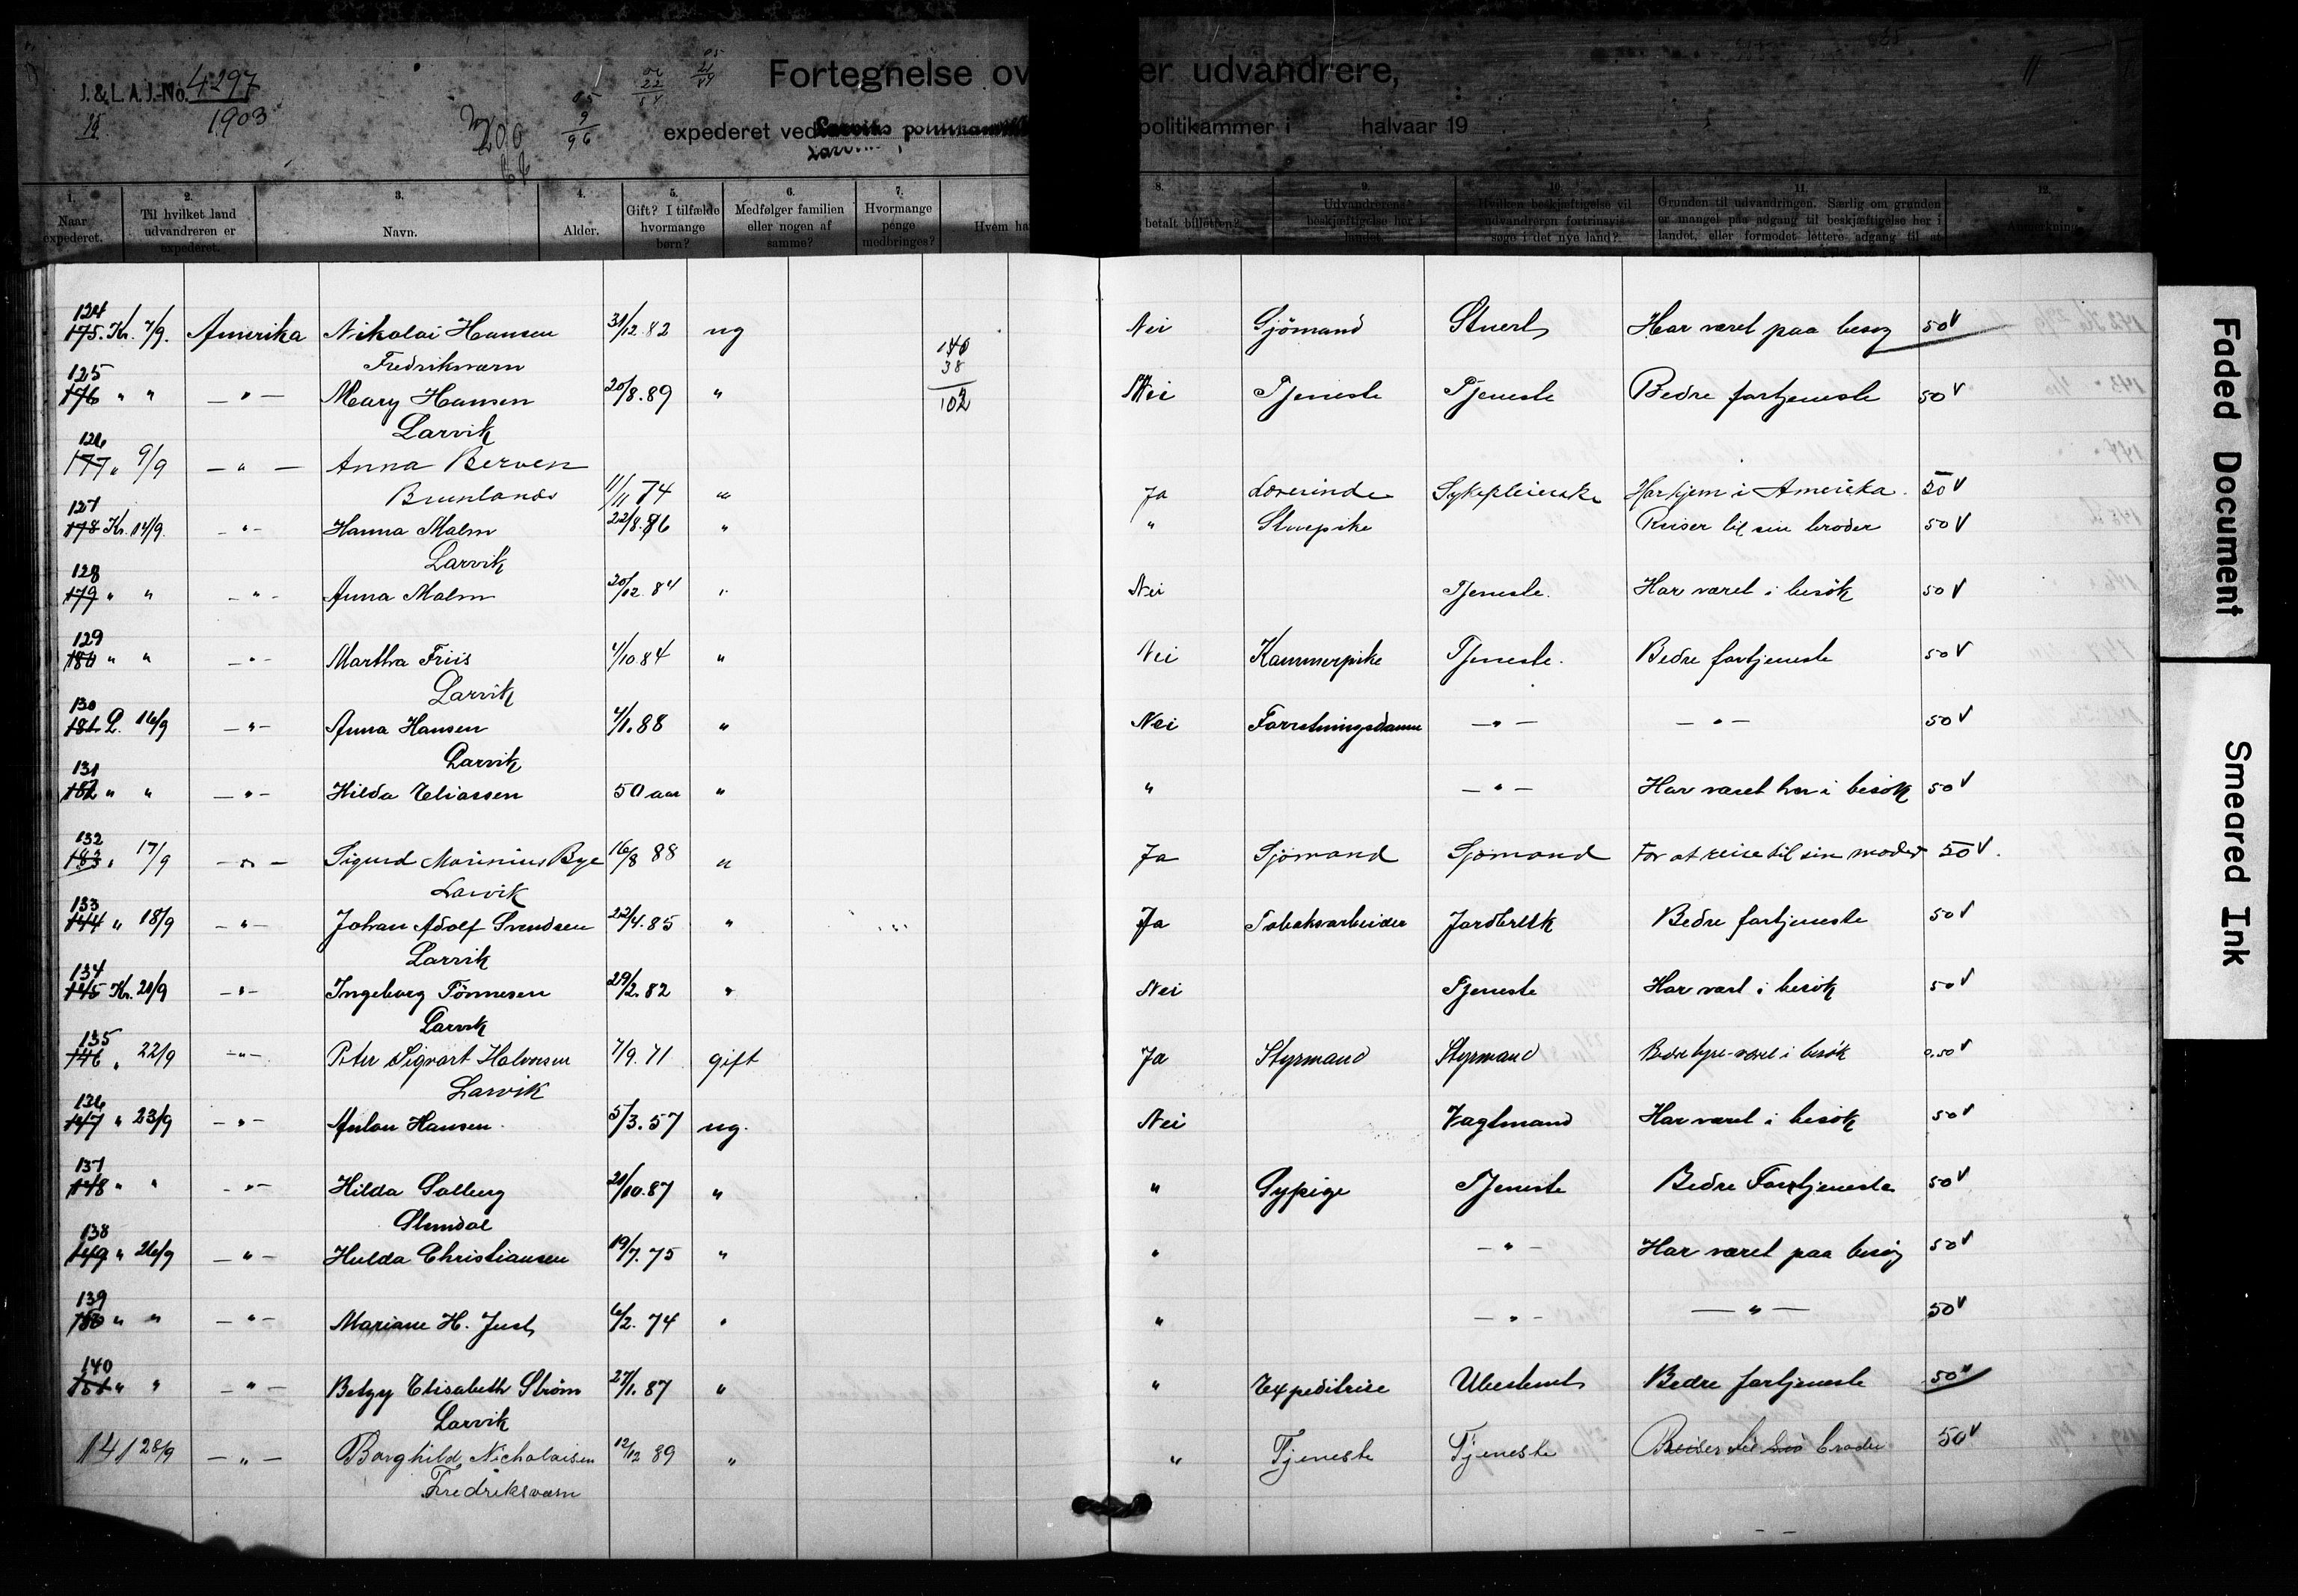 J. & L. A. J.-No. 4297
1903
Fortegnelse over udvandrere,
expederet ved Larviks politikammer i halvaar 19
1. Naar expederet.
2. Til hvilket land udvandreren er expederet.
3. Navn.
4. Alder.
5. Gift? I tilfælde hvormange børn?
6. Medfølger familien eller nogen af samme?
7. Hvormange penge medbringes?
8. Hvem har betalt billetten?
9. Udvandrerens beskjæftigelse her i landet.
10. Hvilken beskjæftigelse vil udvandreren fortrinsvis søge i det nye land?
11. Grunden til udvandringen. Særlig om grunden er mangel paa adgang til beskjæftigelse her i landet, eller formodet lettere adgang til at
12. Anmerkning
124
175. Kr. 7/9. Amerika Nikolai Hansen 31/12.82 ug Nei Sjömand Stuert Har været paa besøg 50 V
Fredriksværn
140
38
102
125
176 " " — " — Mary Hansen 20/8.89 " Nei Tjeneste Tjeneste Bedre fortjeneste 50 V
Larvik
126
177 " 9/9 — " — Anna Berven
Brunlanes 11/11 74 " Ja Lærerinde Sykepleierske Har hjem i Amerika. 50 V
127
178 Kr. 14/9. — " — Hanna Malm 22/8.86 " " Stuepike Reiser til sin broder 50 V
Larvik
128
179 " " — " — Anna Malm 20/12.84 " Nei Tjeneste. Har været i besök 50 V
129
180 " " — " — Martha Friis 4/10.84 " Nei Kammerpike Tjeneste. Bedre fortjeneste 50 V
Larvik
130
181 L. 16/9 — " — Anna Hansen 4/1.88 " Nei Forretningsdame — " — — " — 50 V
Larvik
131
182 " " — " — Hilda Eliassen 50 aar " " — " — Har været her i besök 50 V
132
183 " 17/9 — " — Sigurd Marinius Bye 16/8 88 " Ja Sjömand Sjömand For at reise til sin moder 50 V.
Larvik
133
144 " 18/9 — " — Johan Adolf Svendsen 22/4.85 " Ja Tobaksarbeider Jordbruk Bedre fortjeneste 50 V
Larvik
134
145 Kr. 20/9 — " — Ingeborg Tönnesen 29/2.82 " Nei Tjeneste Har vært i besök 50 V
Larvik
135
146 " 22/9 — " — Peter Sigvart Halvorsen 7/9.71 gift Ja Styrmand Styrmand Bedre hyre-været i besök 0.50 V
Larvik
136
147 " 23/9 — " — Anton Hansen 5/3.57 ug. Nei Vagtmand Har været i besök 50 V
137
148 " " — " — Hilda Solberg 20/10.87 " " Sypige Tjeneste Bedre Fortjeneste 50 V
138
149 " 26/9 — " — Hulda Christiansen 19/7.75 " " — " — Har været paa besög 50 V
139
150 " " — " — Mariane H. Just 6/2.74 " " — " — — " — 50 V
140
151 " " — " — Betzy Elisabeth Ström 27/1.87 " " Expeditrise Ubestemt Bedre fortjeneste 50 "
Larvik
141 28/9 — " — Borghild Nicholaisen 12/12 89 " " Tjeneste Tjeneste Reiser til sin broder 50 V
Fredriksværn
Faded Document
Smeared Ink